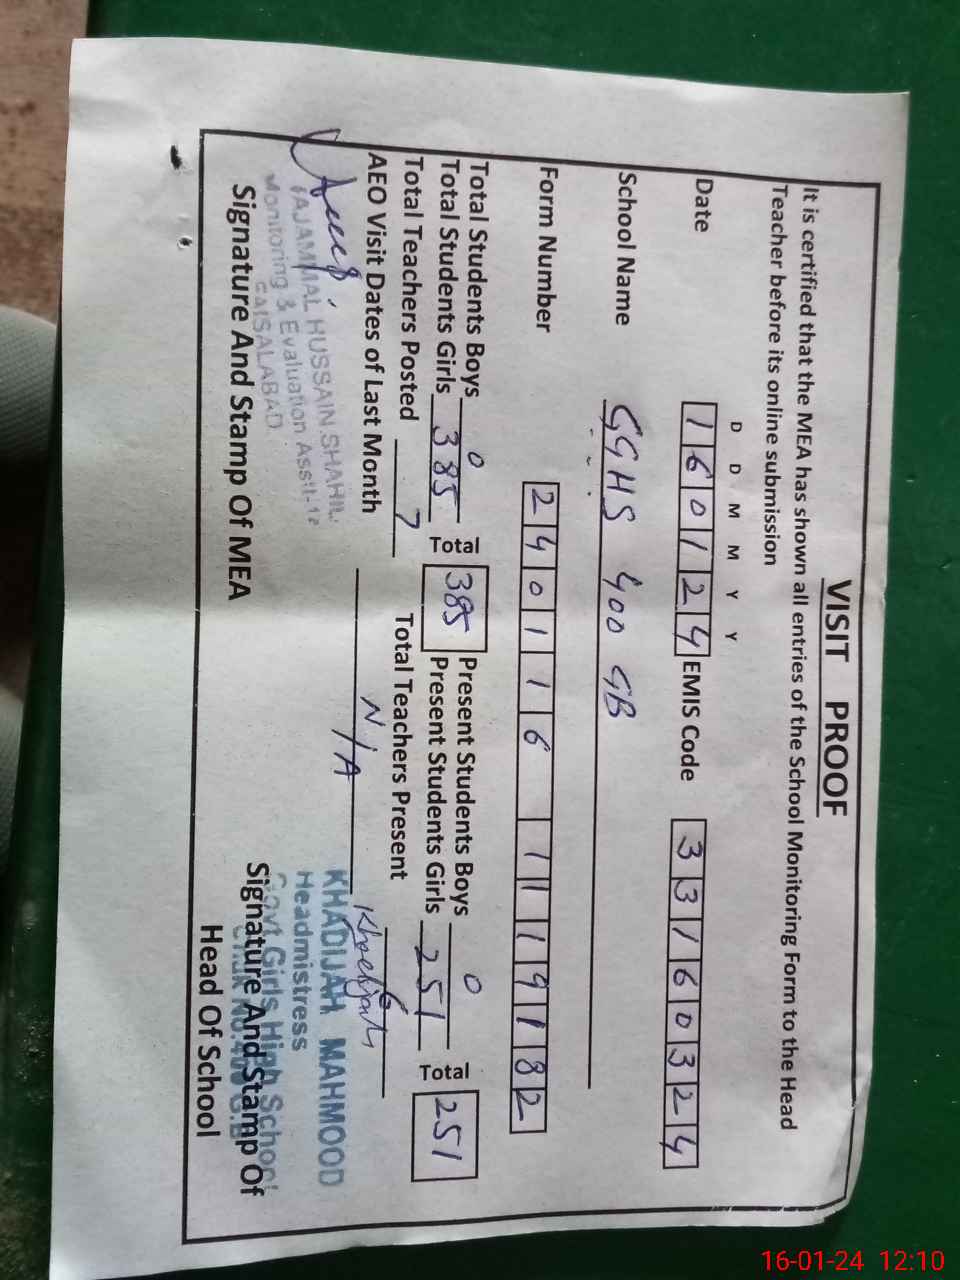 VISIT PROOF
It is certified that the MEA has shown all entries of the School Monitoring Form to the Head
Teacher before its online submission
D D M M Y Y
Date 160124 EMIS Code 33160324
School Name GGHS 400 GB
Form Number 240116 1119182
Total Students Boys 0 Present Students Boys 0
Total Students Girls 385 Total 385 Present Students Girls 251 Total 251
Total Teachers Posted 7 Total Teachers Present 6
AEO Visit Dates of Last Month N/A
Khadijah
TAJAMMAL HUSSAIN SHAHI
Monitoring & Evaluation Asstt-12
FAISALABAD.
KHADIJAH MAHMOOD
Headmistress
Govt Girls High School
Signature And Stamp Of MEA
Signature And Stamp Of
Head Of School
16-01-24 12:10